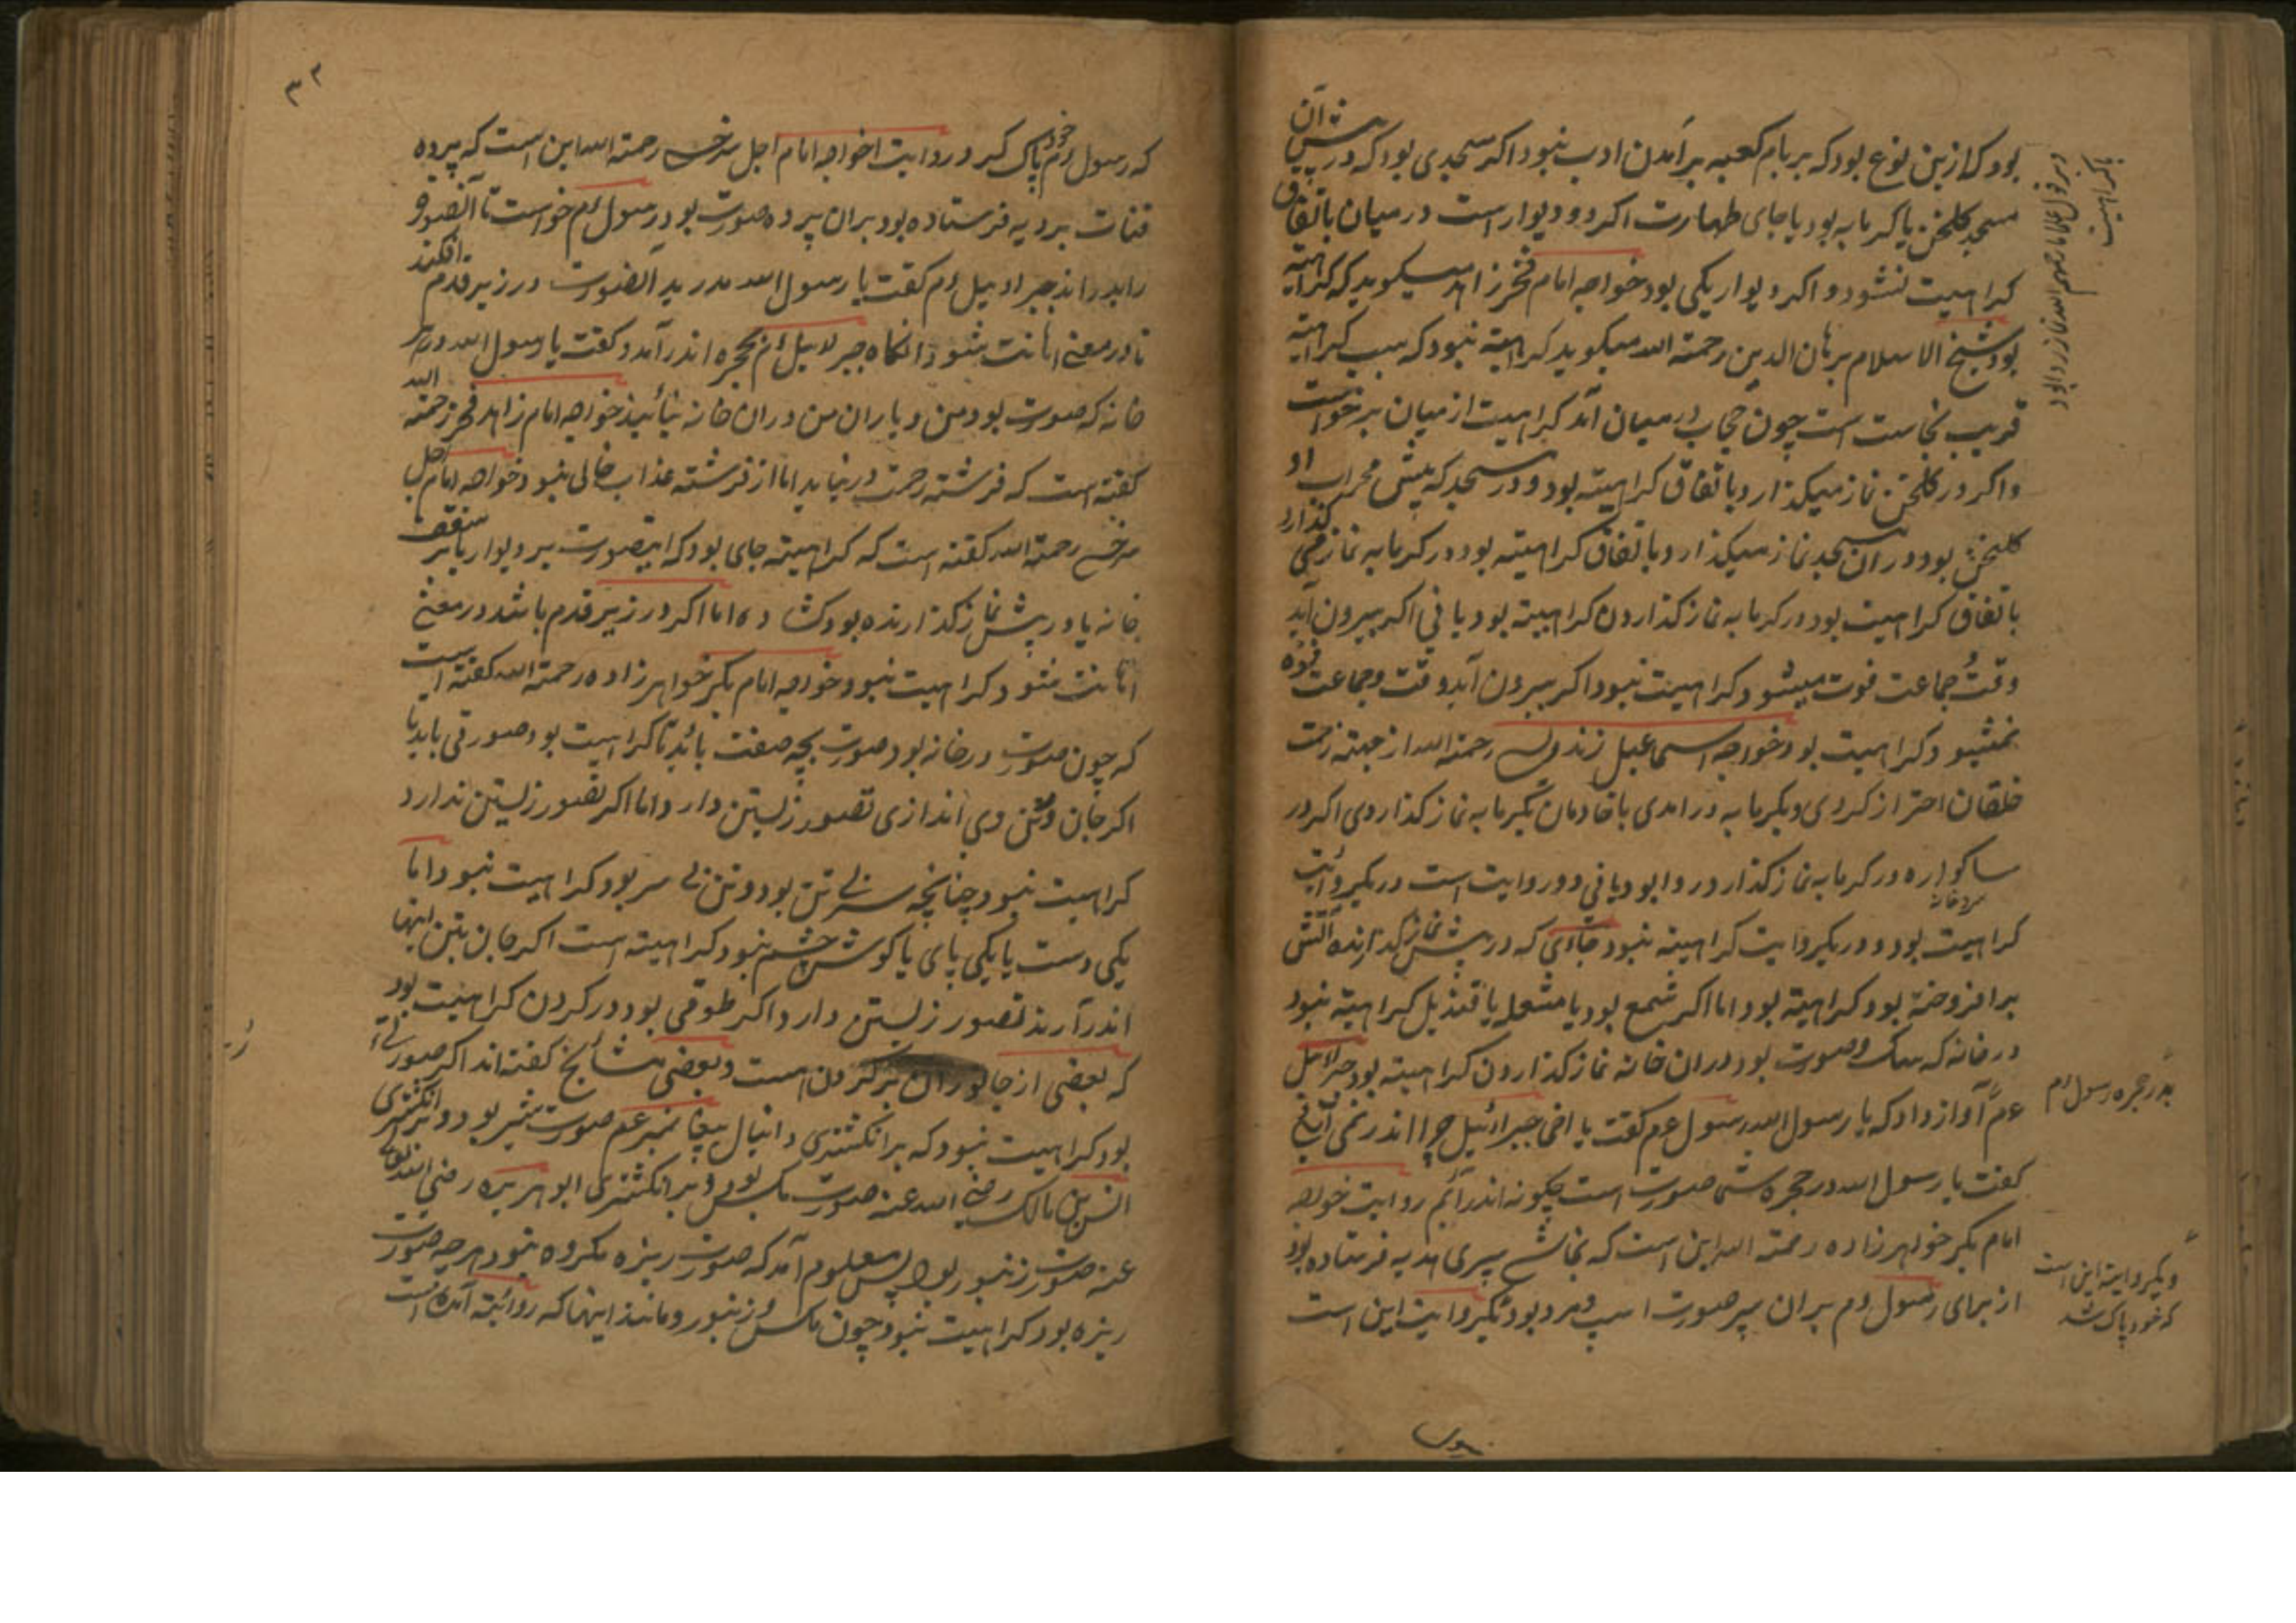 بود که ازین نوع بود که بر بام کعبه برآمدن ادب نبود اکر مسجدی بود که در پیش آن
مسجد کلخن یا کرمابه بود یا جای طهارت اکر دو دیوار است در میان باتفاق
کراهیت نشود و اکر دیوار یکی بود خواجه امام فخر زاهد میکوید که کراهیته
بود شیخ الاسلام برهان الدین رحمته الله میکوید کراهیته نبود که سبب کراهیته
قریب نجاست است چون حجاب در میان آمد کراهیت از میان برخواست
و اکر در کلخن نماز میکذارد باتفاق کراهیته بود و در مسجد که پیش محراب او
کلخن بود در ان مسجد نماز میکذارد باتفاق کراهیته بود در کرمابه نماز کذارد
باتفاق کراهیت بود در کرمابه نماز کذاردن کراهیته بود یا نی اکر بیرون آید
وقت جماعت فوت میشود کراهیت نبود اکر بیرون آید وقت و جماعت فوت
نمیشود کراهیت بود خواجه اسماعیل رحمته الله از جهته زحمت
خلقان احتراز کردی و بکرمابه در امدی با خادمان بکرمابه نماز کذاردی اکر در
در کرمابه نماز کذارد روا بود یا نی دو روایت است در یکروایت
کراهیت بود و در یکروایت کراهیته نبود جائی که در پیش نماز کذارنده آتش
برافروخته بود کراهیته بود اما اکر شمع بود یا مشعله یا قندیل کراهیته نبود
در خانه که سک و صورت بود در ان خانه نماز کذاردن کراهیته بود جبرائیل
عم آواز داد که یا رسول الله رسول عم کفت یا اخی جبرائیل چرا اندر نمی آئی
کفت یا رسول الله در حجره شما صورت است چکونه اندر آئیم روایت خواجه
امام بکر خواهرزاده رحمته الله این است که نجاشی سپری هدیه فرستاده بود
از برای رسول عم بران سپر صورت اسپ و مرد بود یکروایت این است
بدر حجره رسول عم
و یکروایته این است
که خود پاک شد
۳۲
که رسول عم خود پاک کرد و روایت خواجه امام اجل سرخسی رحمته الله این است که پرده
بردیه فرستاده بود بران پرده صورت بود رسول عم خواست تا آنصورت
جبرائیل عم کفت یا رسول الله آنصورت در زیر قدم افکند
تا در معنی اهانت شود آنکاه جبرائیل عم بحجره اندر آمد و کفت یا رسول الله در هر
خانه که صورت بود من و یاران من دران خانه نیائیم خواجه امام زاهد فخر رحمته الله
کفته است که فرشته رحمت در نیاید اما از فرشته عذاب خالی نبود خواجه امام اجل
سرخسی رحمته الله کفته است که کراهیته جای بود که اینصورت بر دیوار یا بر سقف
خانه یا در پیش نماز کذارنده بود کشاده اما اکر در زیر قدم باشد در معنی
اهانت شود کراهیت نبود خواجه امام بکر خواهرزاده رحمته الله کفته است
که چون صورت در خانه بود صورت بچه صفت باید تا کراهیت بود صورتی باید تا
اکر جان در تن وی اندازی تصور زیستن دارد اما اکر تصور زیستن ندارد
کراهیت نبود چنانچه سر بی تن بود و تن بی سر بود کراهیت نبود اما
یکی دست یا یکی پای یا کوش چشم نبود کراهیته است اکر جان بتن اینها
اندر آرند تصور زیستن دارد اکر طوقی بود در کردن کراهیت بود
که بعضی از جانوران بر کردن است و بعضی مشائخ کفته اند اکر صورتی
بود کراهیت نبود که بر انکشتری دانیال پیغامبر عم صورت شیر بود و بر انکشتری
انس بن مالک رضی الله عنه صورت مکس بود و بر انکشتری ابو هریره رضی الله تعالی
عنه صورت زنبور بود پس معلوم آمد که صورت ریزه مکروه نبود هر چه صورت
ریزه بود کراهیت نبود چون مکس و زنبور و مانند اینها که روایته آمده است